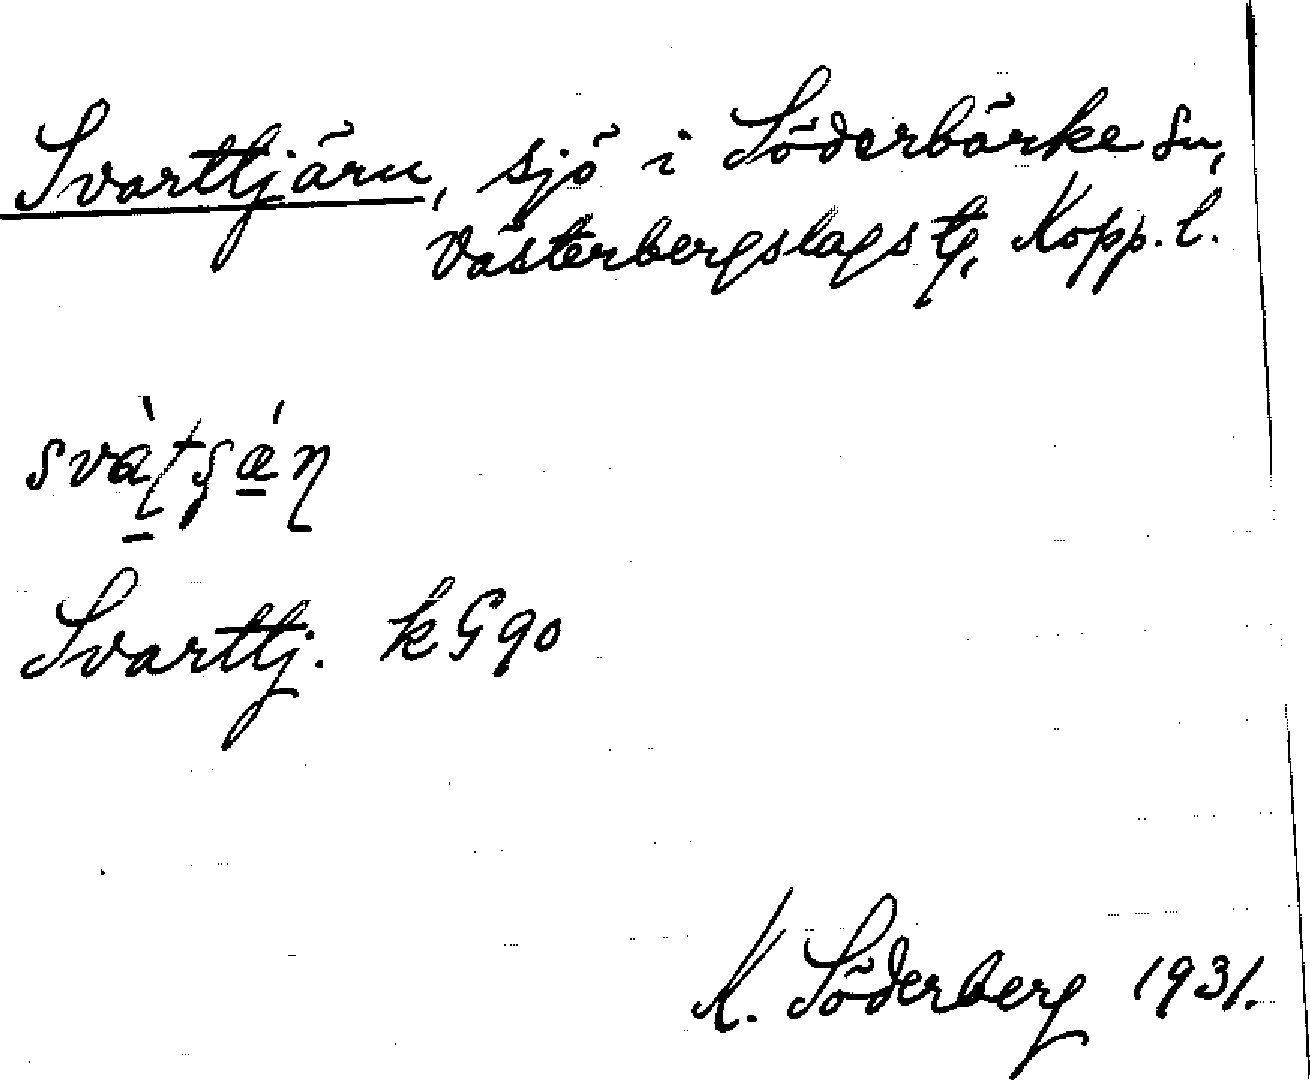 Svarttjärn, sjö i Söderbärke sn,
Västerbergslags tg, Kopp. l.
Svarttj. kG90
K. Söderberg 1931.